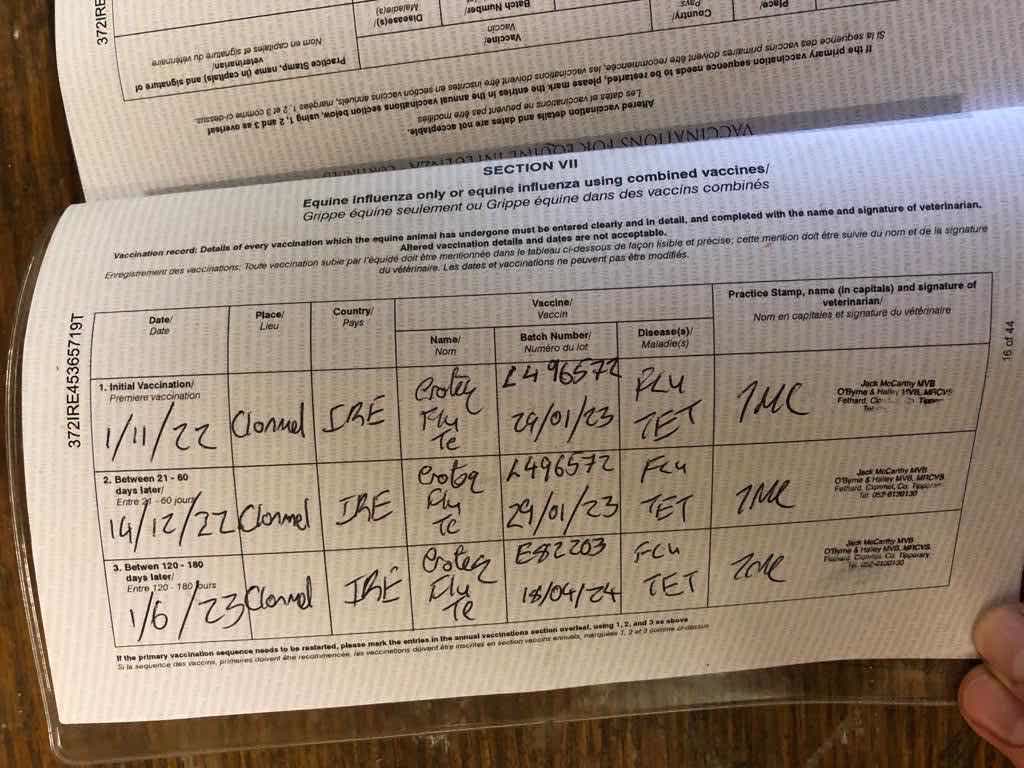 372IRE
VACCINATIONS FOR EQUINE INFLUENZA
Altered vaccination details and dates are not acceptable.
Les dates et vaccinations ne peuvent pas être modifiés
If the primary vaccination sequence needs to be restarted, please mark the entries in the annual vaccinations section below, using 1, 2 and 3 as overleaf
Si la sequence des vaccins primaires doivent être recommencée, les vaccinations doivent être inscrites en section vaccins annuels, margées 1, 2 et 3 comme ci-dessus
Place/
Country/
Pays
Vaccine/
Vaccin
Batch Number/
Disease(s)/
Maladie(s)
Practice Stamp, name (in capitals) and signature of
veterinarian/
Nom en capitales et signature du vétérinaire
SECTION VII
Equine influenza only or equine influenza using combined vaccines/
Grippe équine seulement ou Grippe équine dans des vaccins combinés
Vaccination record: Details of every vaccination which the equine animal has undergone must be entered clearly and in detail, and completed with the name and signature of veterinarian.
Altered vaccination details and dates are not acceptable.
Enregistrement des vaccinations: Toute vaccination subie par l'équidé doit être mentionnée dans le tableau ci-dessous de façon lisible et précise; cette mention doit être suivie du nom et de la signature
du vétérinaire. Les dates et vaccinations ne peuvent pas être modifiés.
372IRE45365719T
16 of 44
Date/
Date
Place/
Lieu
Country/
Pays
Vaccine/
Vaccin
Name/
Nom
Batch Number/
Numéro du lot
Disease(s)/
Maladie(s)
Practice Stamp, name (in capitals) and signature of
veterinarian/
Nom en capitales et signature du vétérinaire
1. Initial Vaccination/
Premiere vaccination
1/11/22
Clonmel
IRE
Proteq
Flu
Te
L496572
29/01/23
FLU
TET
JMC
Jack McCarthy MVB
O'Byrne & Halley MVB, MRCVS
Fethard, Tipper
Tel
2. Between 21 - 60
days later/
Entre 21 - 60 jours
14/12/22
Clonmel
IRE
Proteq
Flu
Te
L496572
29/01/23
FLU
TET
JMC
Jack McCarthy MVB
O'Byrne & Halley MVB, MRCVS
Fethard, Clonmel, Co. Tipperary.
Tel: 052-6130130
3. Betwen 120 - 180
days later/
Entre 120 - 180 jours
1/6/23
Clonmel
IRE
Proteq
Flu
Te
E82203
18/04/24
FLU
TET
JMC
Jack McCarthy MVB
O'Byrne & Halley MVB, MRCVS
Fethard, Clonmel, Co. Tipperary.
Tel: 052-6130130
If the primary vaccination sequence needs to be restarted, please mark the entries in the annual vaccinations section overleaf, using 1, 2, and 3 as above
Si la sequence des vaccins, primaires doivent être recommencée, les vaccinations doivent être inscrites en section vaccins annuels, marquées 1, 2 et 3 comme ci-dessus